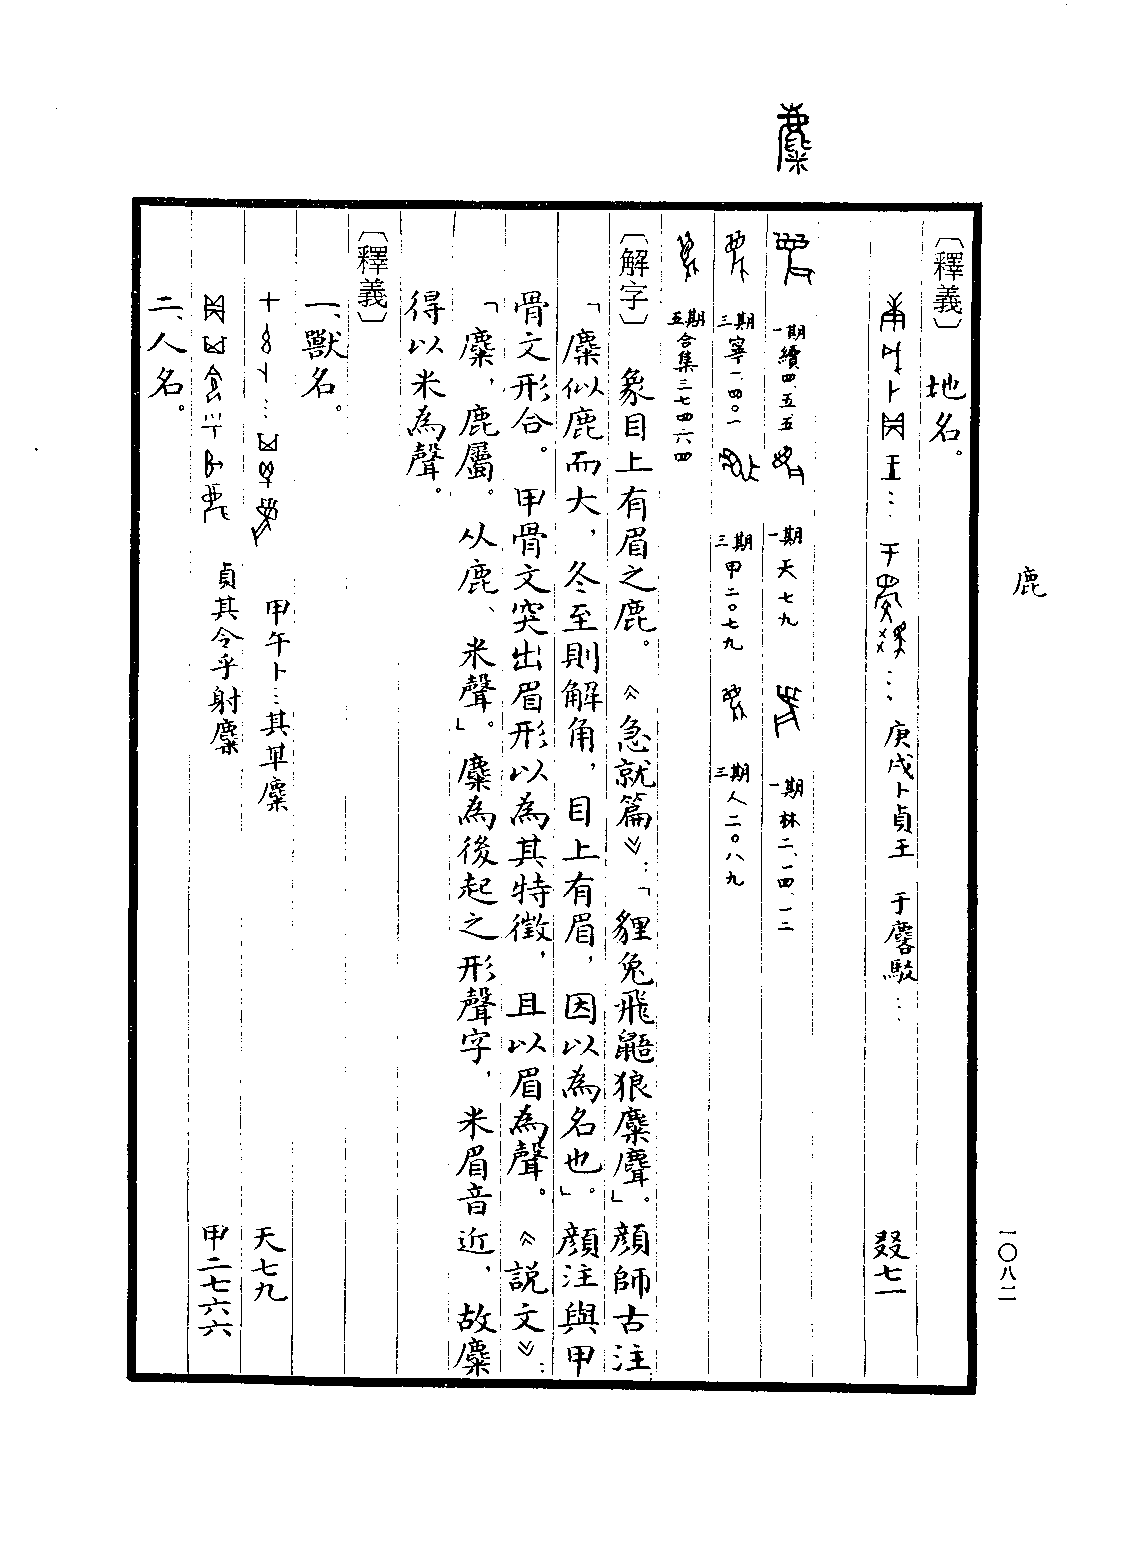 鹿
一〇八二
〔釋義〕地名。
庚戌卜貞王 于麐駁… 叕七一
麋
一期續四、五五 一期天七九 一期林二、一四、一二
三期寧一、四〇一 三期甲二〇七九 三期人二〇八九
五期合集三七四六四
〔解字〕象目上有眉之鹿。《急就篇》:「貍兔飛鼯狼麋麞」。顏師古注
「麋似鹿而大,冬至則解角,目上有眉,因以為名也」。顏注與甲
骨文形合。甲骨文突出眉形以為其特徵,且以眉為聲。《說文》:
「麋,鹿屬。从鹿、米聲」。麋為後起之形聲字,米眉音近,故麋
得以米為聲。
〔釋義〕
一、獸名。
甲午卜…其𠦪麋 天七九
貞其令乎射麋 甲二七六六
二、人名。